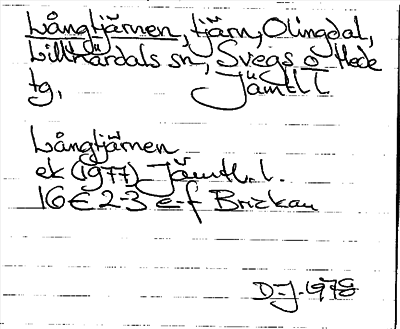 Långtjärnen, tjärn, Olingdal,
Lillhärdals sn, Svegs o Hede
tg, Jämtl l
Långtjärnen
ek (1977) Jämtl. l.
16E 2-3 e-f Brickan
D-J. 1978